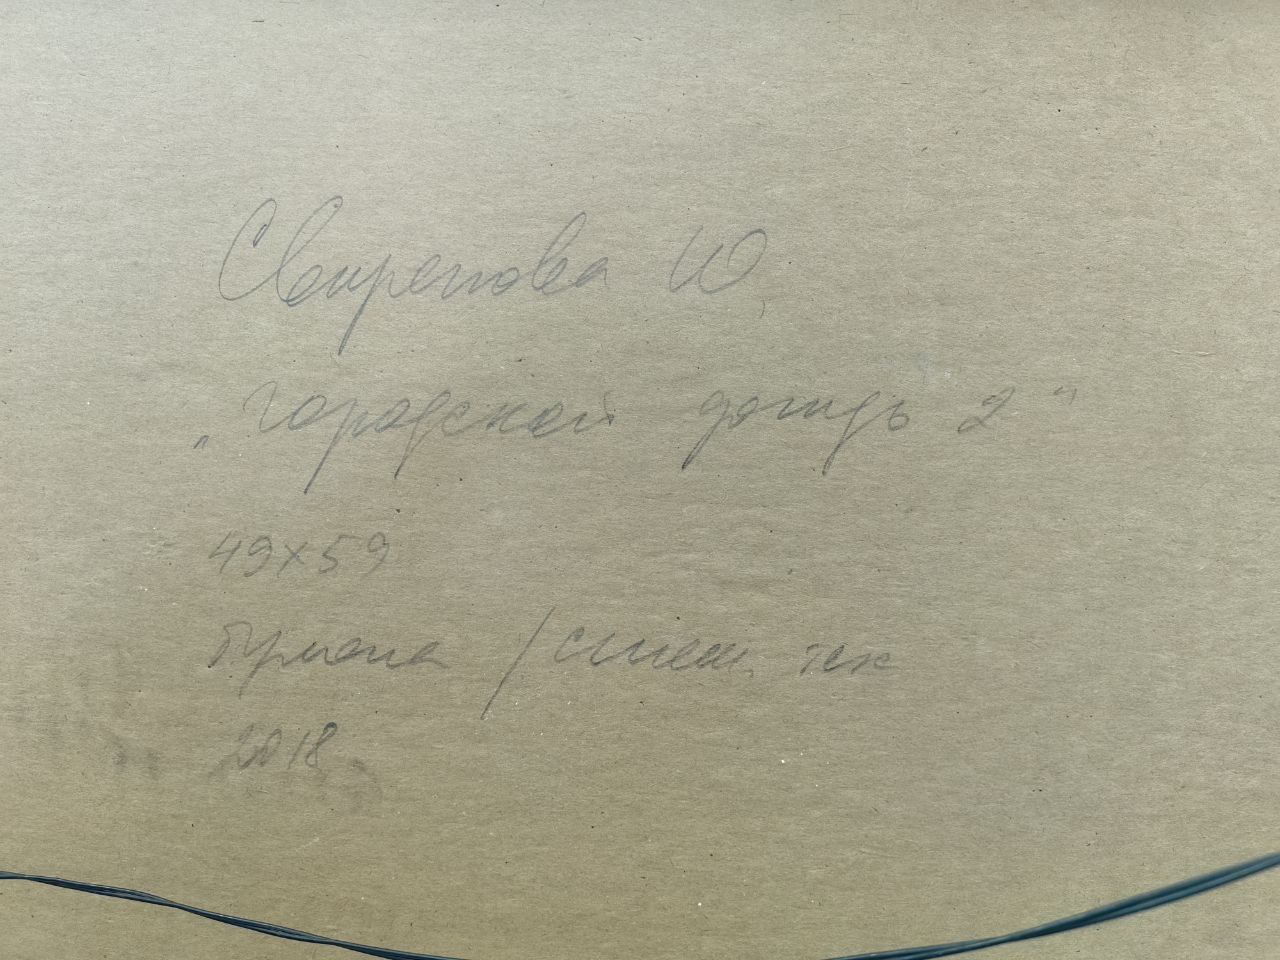 Свирепова Ю.
„Городской дождь 2"
49х59
бумага / смеш. тех
2018